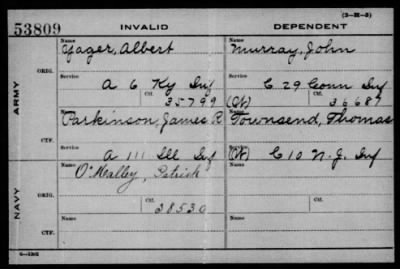 (3-M-3)
53809 INVALID DEPENDENT
Name Name
Yager, Albert Murray, John
ORIG.
Service Service
A 6 Ky Inf C 29 Conn Inf
Ctf. Ctf.
35799 (Ct) 36687
ARMY
Name Name
Parkinson, James R Townsend, Thomas
CTF.
Service Service
A 111 Ill Inf C 10 N.J. Inf
Name Name
O'Malley, Patrick
NAVY
ORIG.
Ctf. Ctf.
38530
Name Name
CTF.